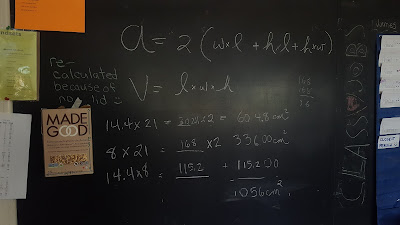 a = 2 (w×l + h·l + h×w)
re-
calculated
because of
no lid
V = l × w × h
14.4 × 21 = 302.4 × 2 = 604.8 cm²
8 × 21 = 168 × 2 336.00 cm²
14.4 × 8 = 115.2 + 115.200
1056 cm²
168
MADE
GOOD
CLASS JOBS
James